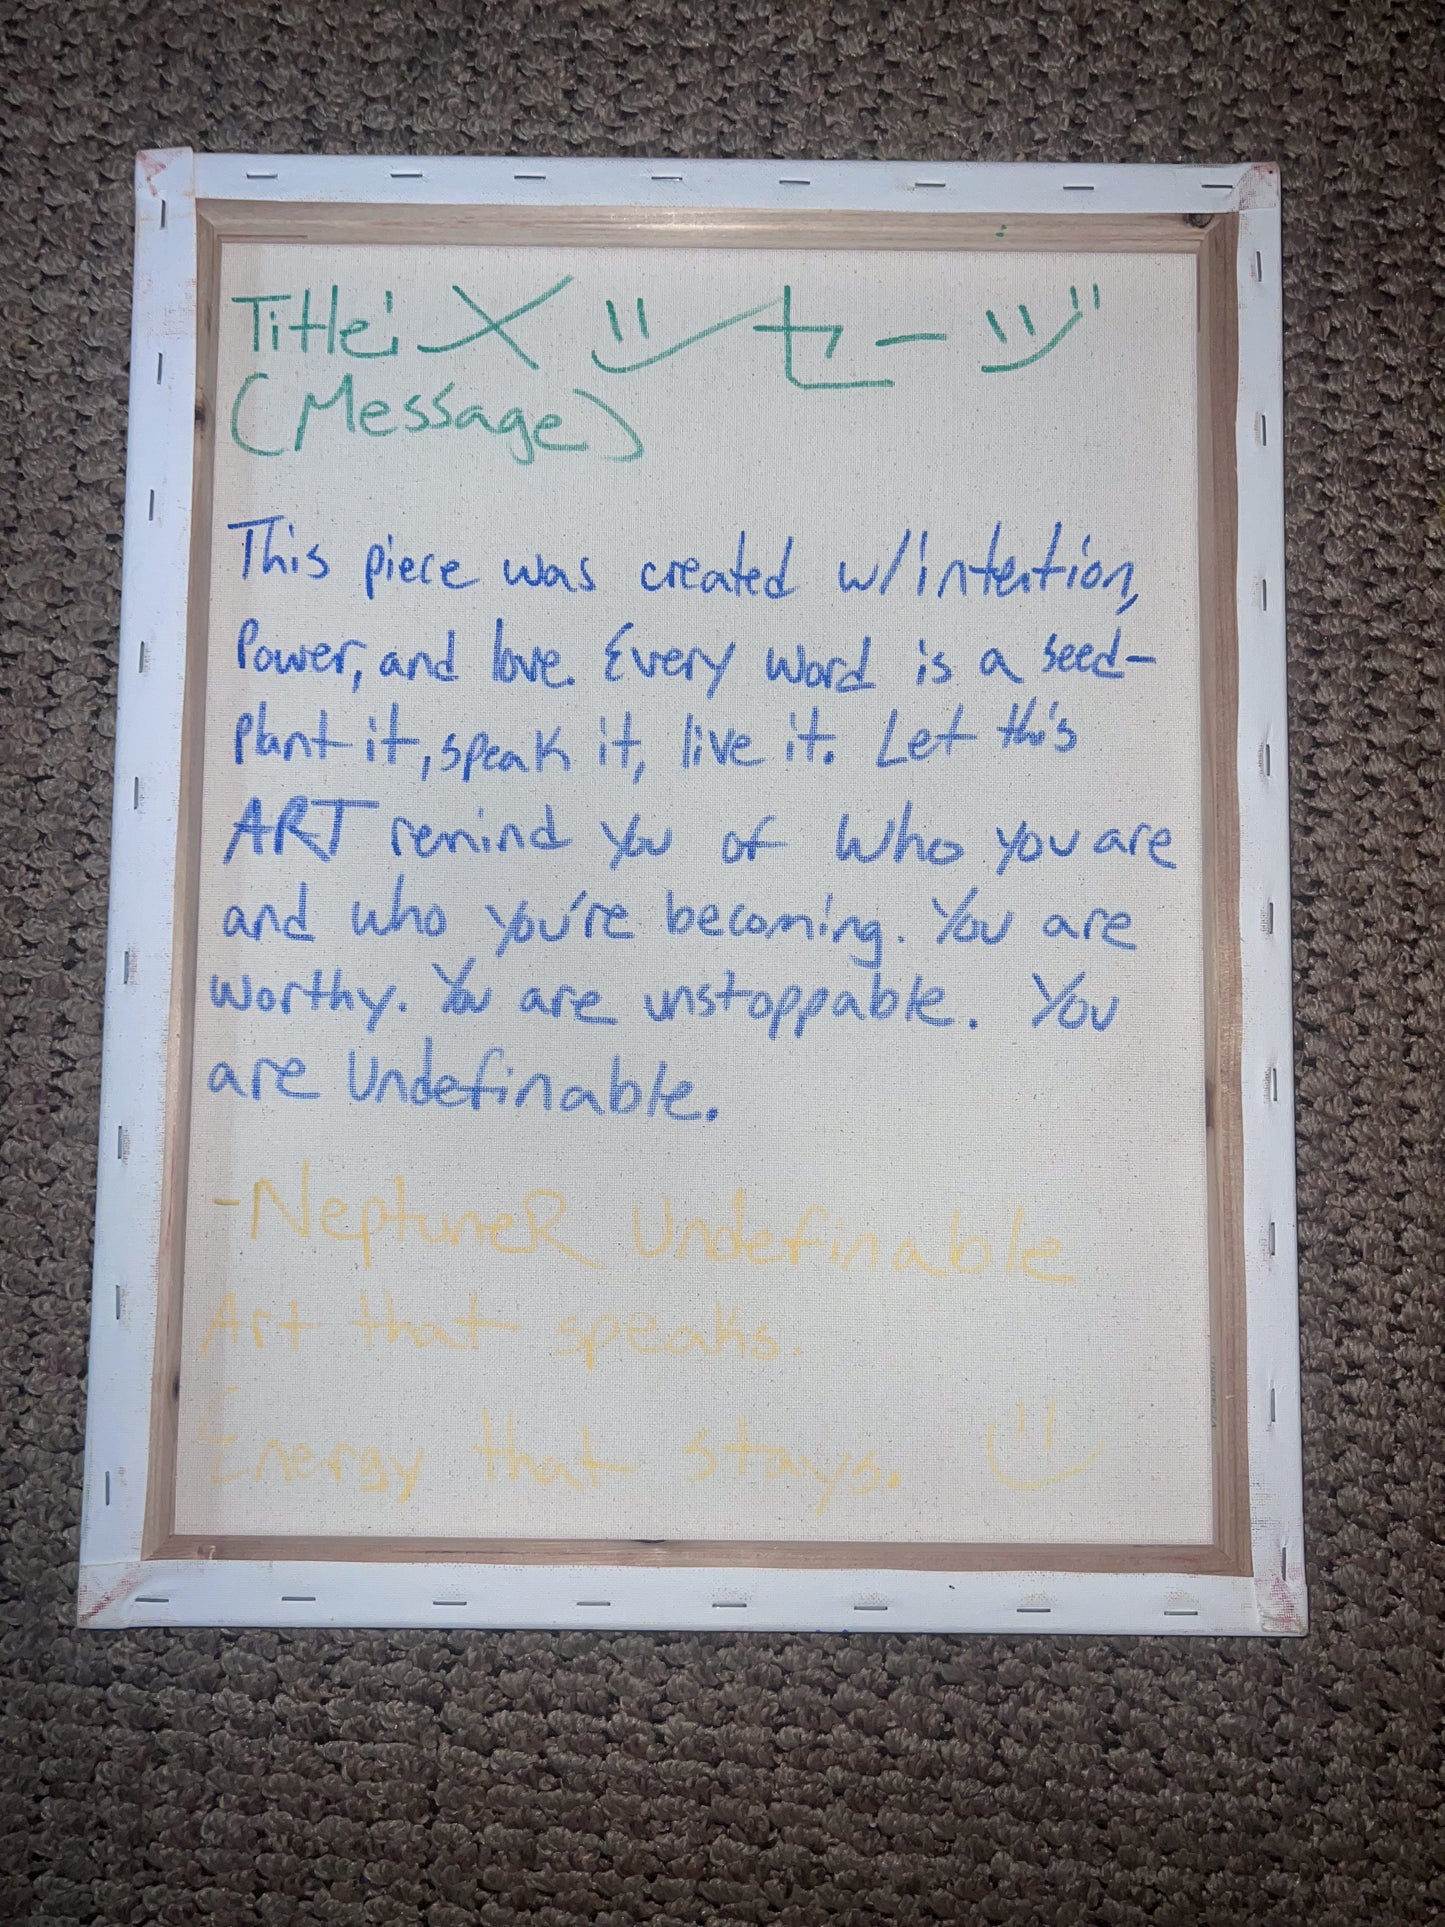 Title: メッセージ
(Message)
This piece was created w/intention,
Power, and love. Every word is a seed-
plant it, speak it, live it. Let this
ART remind you of who you are
and who you're becoming. You are
worthy. You are unstoppable. You
are Undefinable.
-NeptuneR Undefinable
Art that speaks.
Energy that stays.